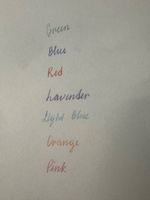 Green
Blue
Red
Lavender
Light Blue
Orange
Pink